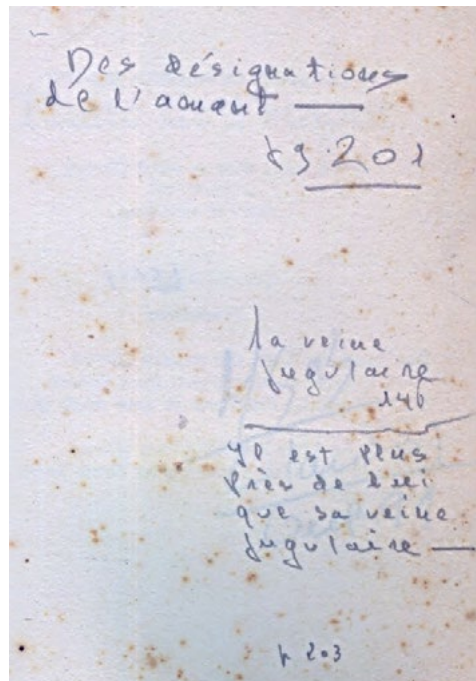 Des désignations
de l'amant —
pg. 201
la veine
jugulaire
146
Il est plus
près de lui
que sa veine
jugulaire —
p 203